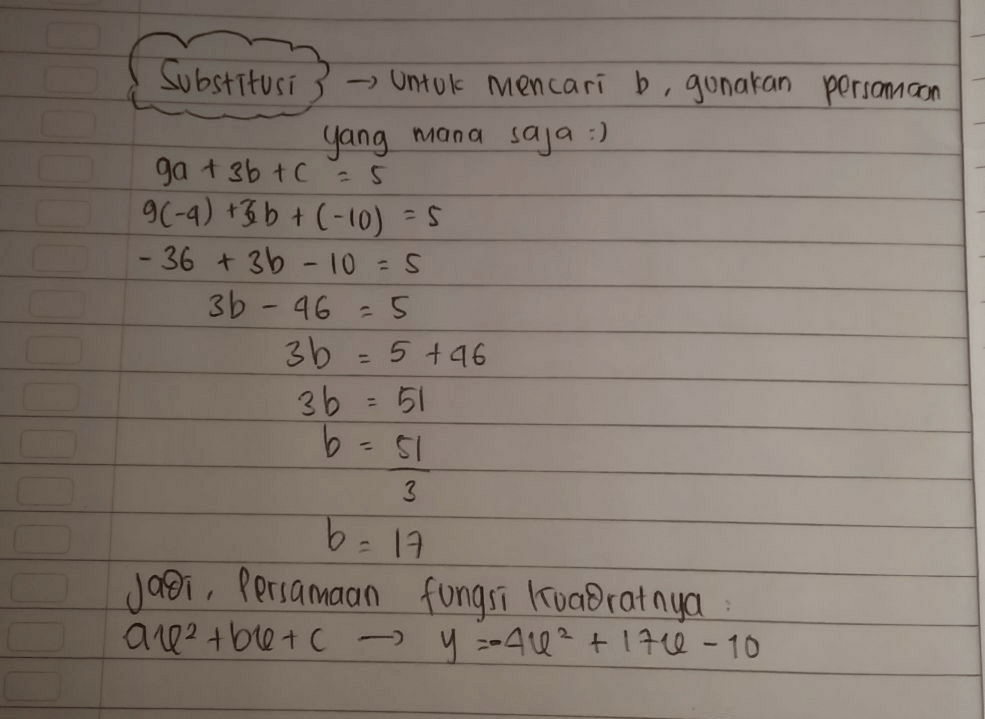 Substitusi → Untuk mencari b, gunakan persamaan
yang mana saja :)
9a + 3b + c = 5
9(-4) + 3b + (-10) = 5
- 36 + 3b - 10 = 5
3b - 46 = 5
3b = 5 + 46
3b = 51
b = 51
3
b = 17
Jadi, Persamaan fungsi kuadratnya :
ax² + bx + c → y = -4x² + 17x - 10